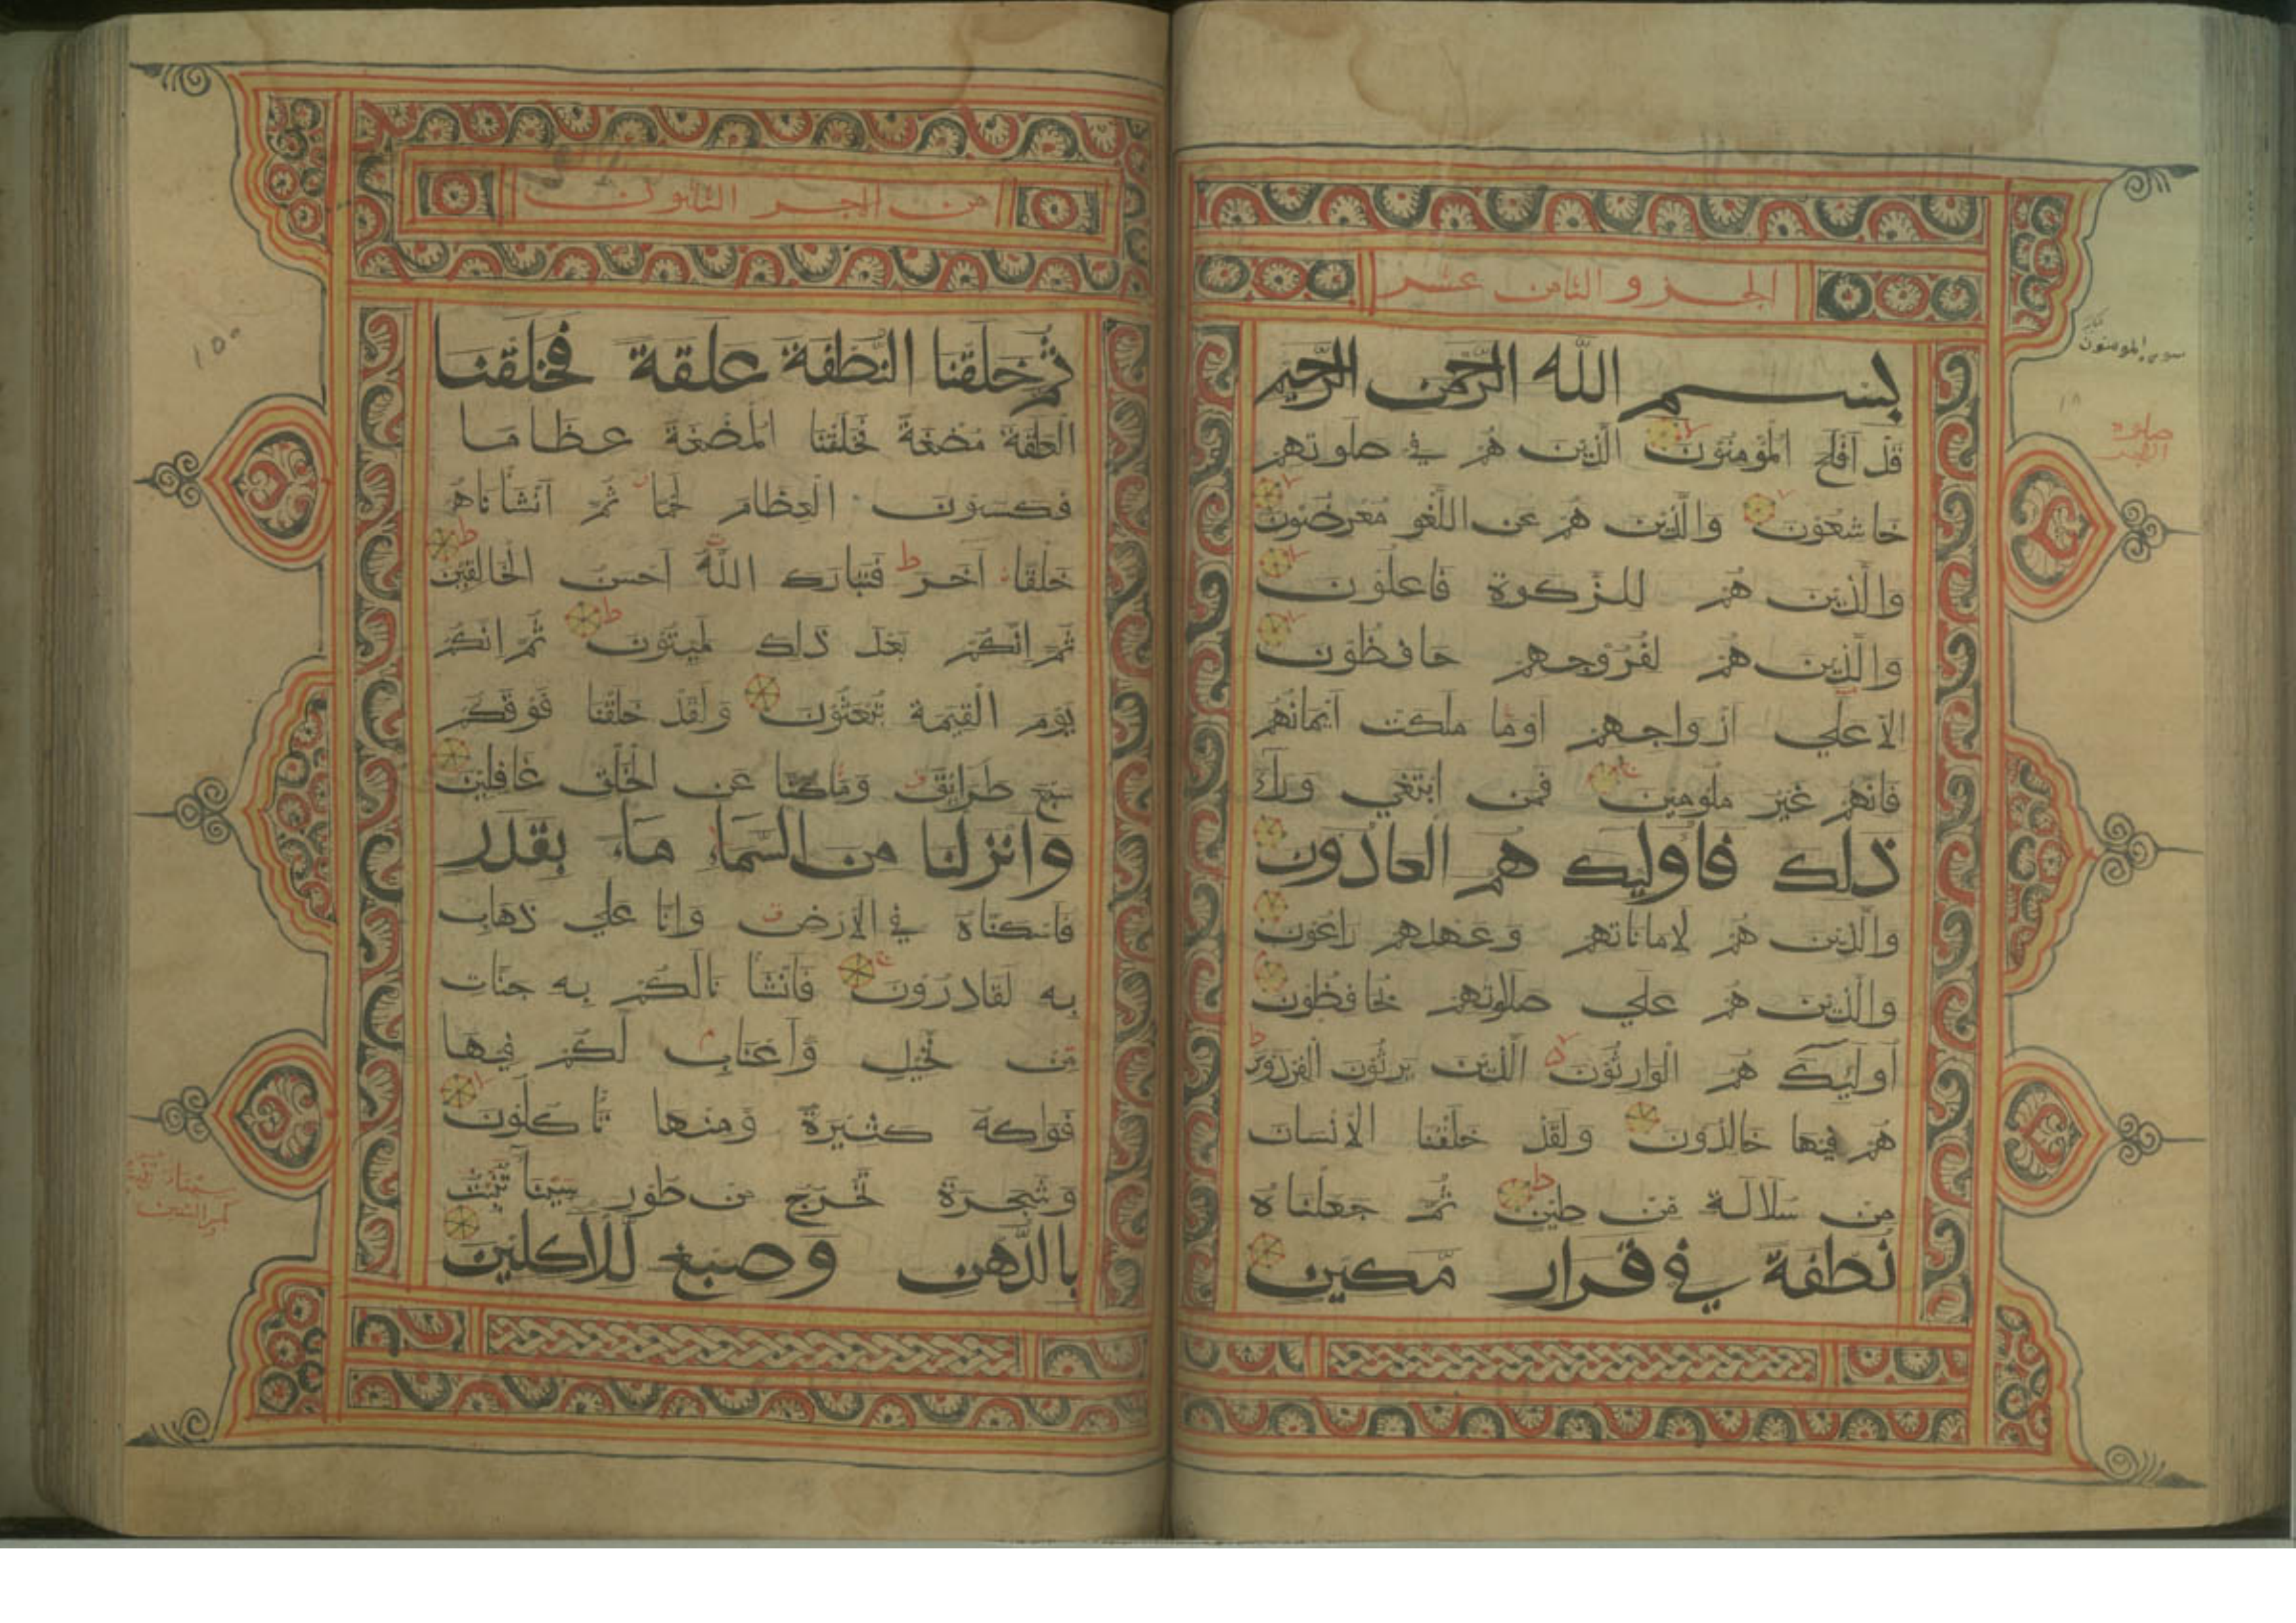 الجزو الثامن عشر
سورة المومنون
بسم الله الرحمن الرحيم
قَدْ اَفْلَحَ الْمُؤْمِنُوْنَ الَّذِيْنَ هُمْ فِيْ صَلوتهم
خَاشِعُوْنَ وَالَّذِيْنَ هُمْ عَنِ اللَّغْوِ مُعْرِضُوْنَ
وَالَّذِيْنَ هُمْ لِلزَّكوة فَاعِلُوْنَ
وَالَّذِيْنَ هُمْ لِفُرُوْجِهِمْ حَافِظُوْنَ
الاّ علي ازواجهم اوما ملكت ايمانهم
فَانهم غير ملومين فمن ابتغي ورآء
ذلك فاُوليك هم العادون
والذين هم لاماناتهم وعهدهم راعون
والذين هم علي صلاوتهم يحافظون
اوليك هم الوارثون الذين يرثون الفردوس
هم فيها خالدون ولقد خلقنا الانسان
من سلالة من طين ثم جعلناه
نطفة في قرار مكين
من الجز الثامن
ثم خلقنا النطفة علقة فخلقنا
العلقة مضغة فخلقنا المضغة عظاما
فكسون العظام لحما ثم انشاناه
خلقا آخر فتبارك الله احسن الخالقين
ثم انكم بعد ذلك لميتون ثم انكم
يوم القيمة تبعثون ولقد خلقنا فوقكم
سبع طرايق وماكنا عن الخلق غافلين
وانزلنا من السماء ماء بقدر
فاسكناه في الارض وانا علي ذهاب
به لقادرون فانشا نالكم به جنات
من نخيل واعناب لكم فيها
فواكه كثيرة ومنها تاكلون
وشجرة تخرج من طور سينآ تنبت
بالدهن وصبغ للاكلين